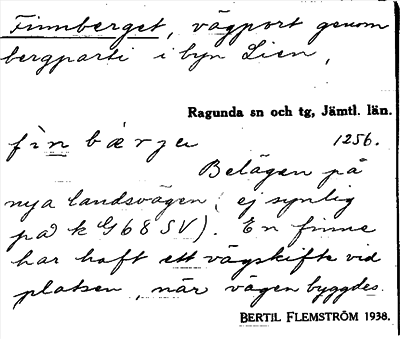 Finnberget, vägport genom
bergparti i byn Lien,
Ragunda sn och tg, Jämtl. län.
fìn bár̀jeʒ 1256.
Belägen på
nya landsvägen (ej synlig
på k G68SV). En finne
har haft ett vägskifte vid
platsen, när vägen byggdes.
BERTIL FLEMSTRÖM 1938.